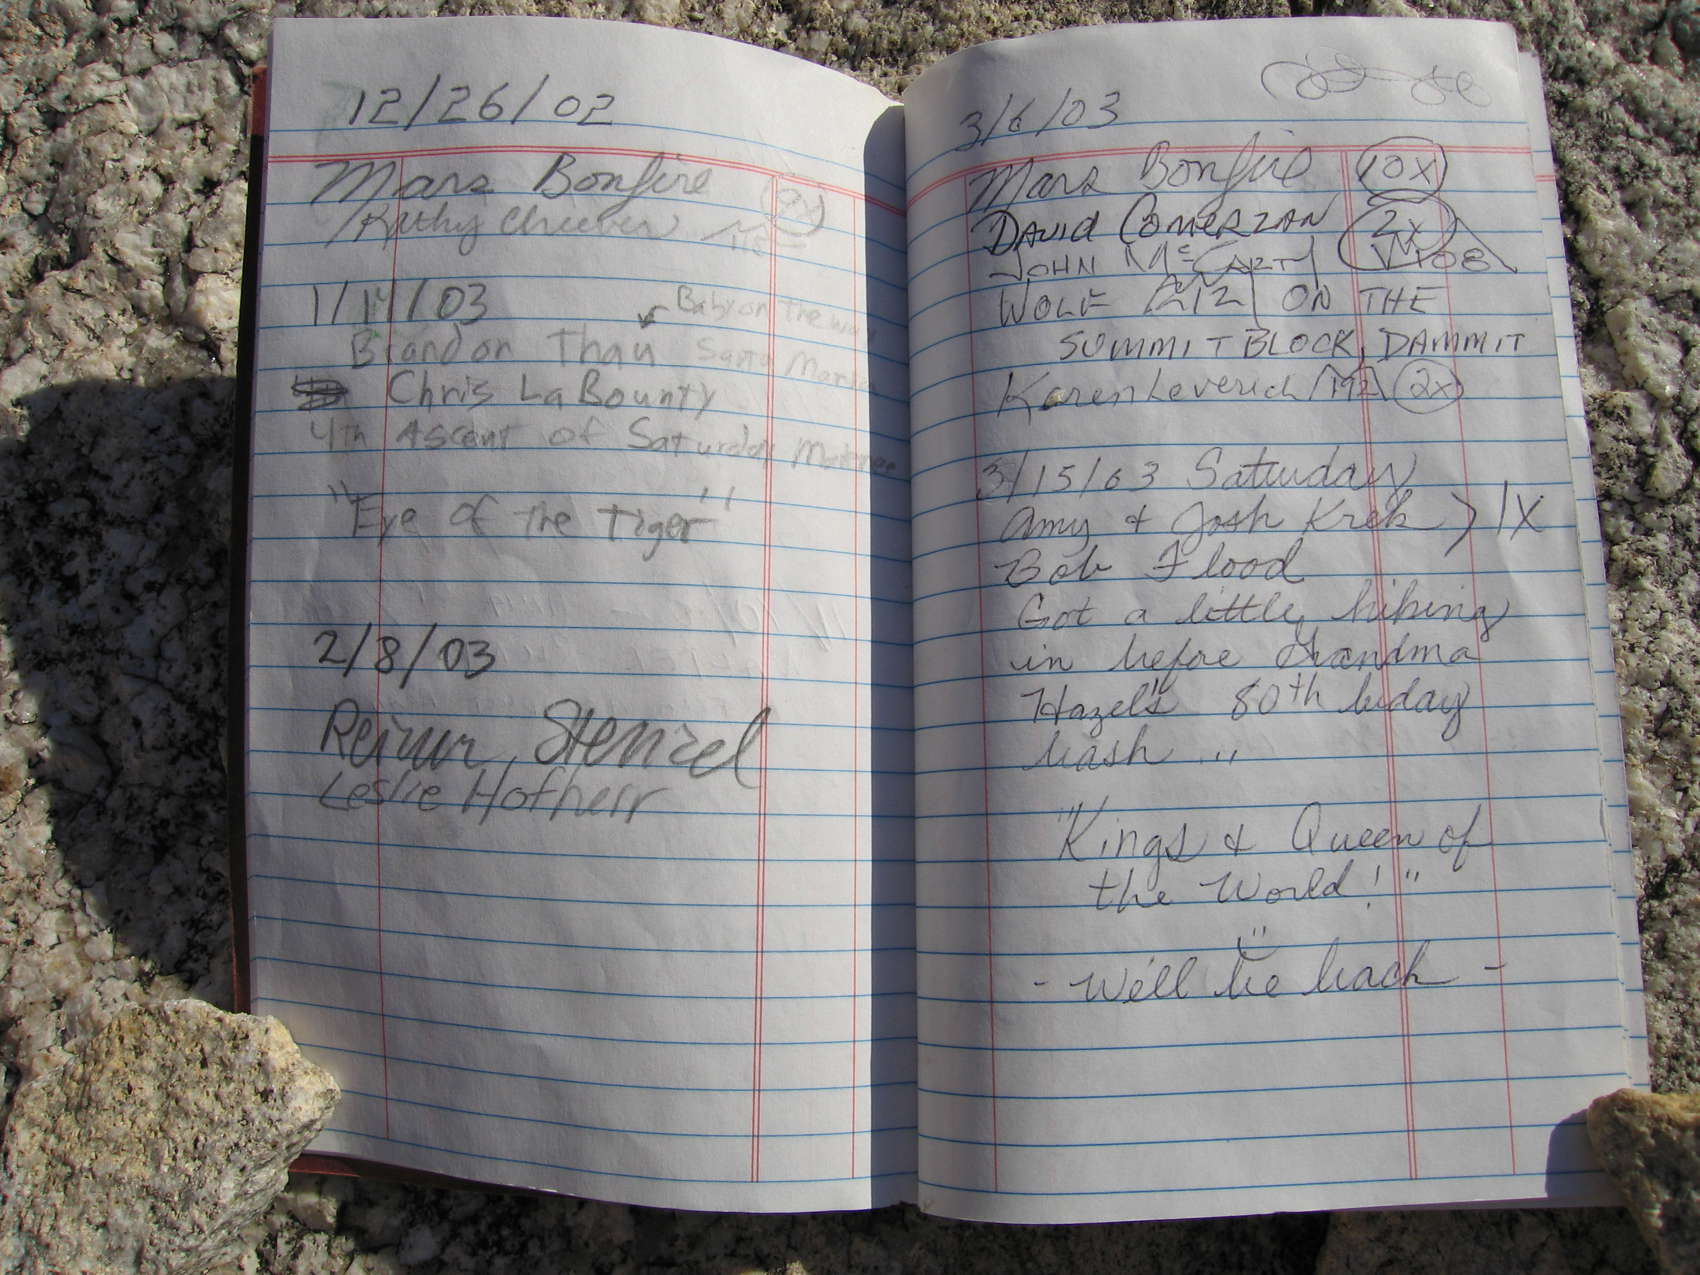 12/26/02
Mars Bonfire 9x
Kathy Cheever
1/11/03 Baby on the way
Brandon Thau Santa Maria
Chris LaBounty
4th Ascent of Saturday
"Eye of the Tiger"
2/8/03
Reiner Stenzel
Leslie Hofherr
3/6/03
Mars Bonfire 10x
DAVID COMERZAN 2x
JOHN McCARTY 108
WOLF ON THE
SUMMIT BLOCK, DAMMIT
Karen Leverich 192 2x
3/15/03 Saturday
Amy & Josh Krek > 1X
Bob Flood
Got a little hiking
in before Grandma
Hazel's 80th b-day
bash ..
"Kings & Queen of
the World!"
- We'll be back -